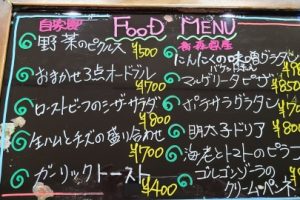 FOOD MENU
自家製
野菜のピクルス ¥500
おまかせ3点オードブル
¥700
ローストビーフのシーザーサラダ
¥800
生ハムとチーズの盛り合わせ
¥700
ガーリックトースト
¥400
青森県産
にんにくの味噌グラタン
バゲット
マルゲリータピザ
¥850
ポテサラグラタン
¥700
明太子ドリア
¥800
海老とトマトのピラフ
ゴルゴンゾーラの
クリームペンネ